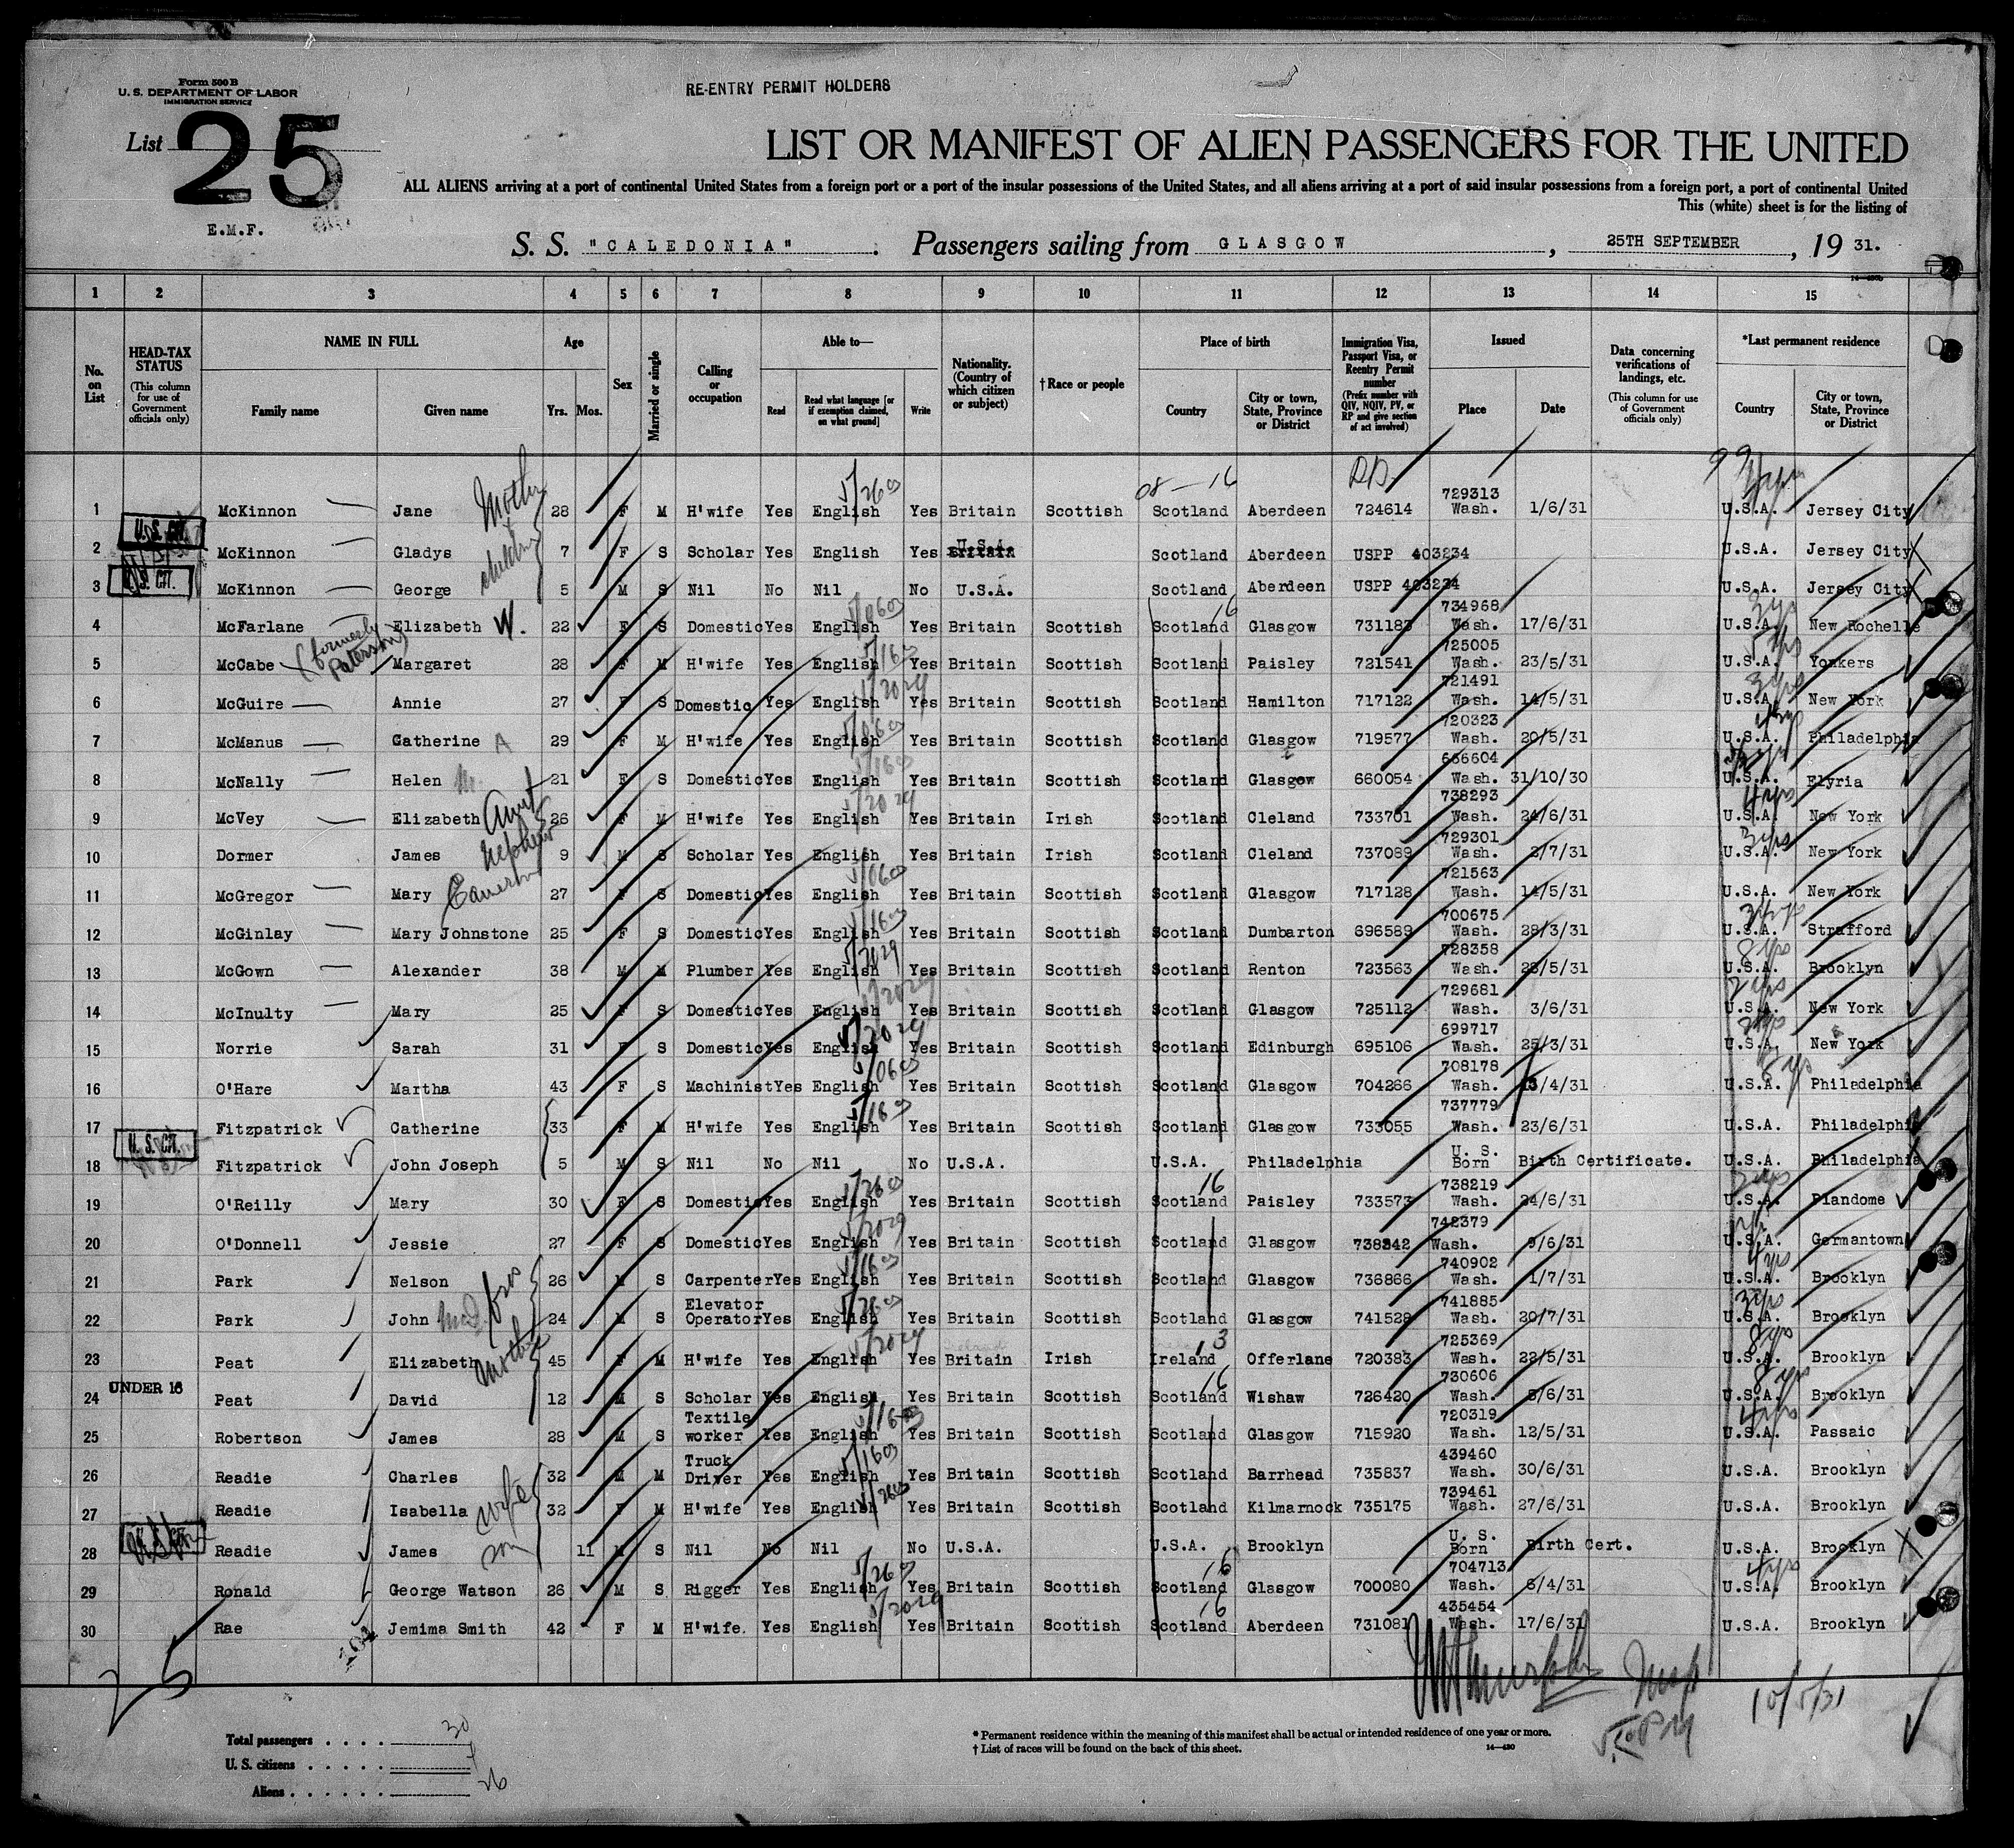 Form 500 B
U. S. DEPARTMENT OF LABOR
IMMIGRATION SERVICE
RE-ENTRY PERMIT HOLDERS
List 25
LIST OR MANIFEST OF ALIEN PASSENGERS FOR THE UNITED
ALL ALIENS arriving at a port of continental United States from a foreign port or a port of the insular possessions of the United States, and all aliens arriving at a port of said insular possessions from a foreign port, a port of continental United
This (white) sheet is for the listing of
E.M.F.
S. S. "CALEDONIA" . Passengers sailing from GLASGOW , 25TH SEPTEMBER , 19 31.
1 2 3 4 5 6 7 8 9 10 11 12 13 14 15
No. on List
HEAD-TAX STATUS (This column for use of Government officials only)
NAME IN FULL Family name Given name
Age Yrs. Mos.
Sex
Married or single
Calling or occupation
Able to— Read Read what language [or if exemption claimed, on what ground] Write
Nationality. (Country of which citizen or subject)
† Race or people
Place of birth Country City or town, State, Province or District
Immigration Visa, Passport Visa, or Reentry Permit number (Prefix number with QIV, NQIV, PV, or RP and give section of act involved)
Issued Place Date
Data concerning verifications of landings, etc. (This column for use of Government officials only)
*Last permanent residence Country City or town, State, Province or District
1 McKinnon Jane Mother 28 F M H'wife Yes English Yes Britain Scottish Scotland Aberdeen 724614 729313 Wash. 1/6/31 U.S.A. Jersey City
2 U.S. CIT. McKinnon Gladys children 7 F S Scholar Yes English Yes Britain U.S.A. Scotland Aberdeen USPP 403234 U.S.A. Jersey City
3 U.S. CIT. McKinnon George 5 M S Nil No Nil No U.S.A. Scotland Aberdeen USPP 403234 U.S.A. Jersey City
4 McFarlane Elizabeth W. 22 F S Domestic Yes English Yes Britain Scottish Scotland Glasgow 731183 734968 Wash. 17/6/31 U.S.A. New Rochelle
5 McCabe (formerly Paterson) Margaret 28 F M H'wife Yes English Yes Britain Scottish Scotland Paisley 721541 725005 Wash. 23/5/31 U.S.A. Yonkers
6 McGuire Annie 27 F S Domestic Yes English Yes Britain Scottish Scotland Hamilton 717122 721491 Wash. 14/5/31 U.S.A. New York
7 McManus Catherine A 29 F M H'wife Yes English Yes Britain Scottish Scotland Glasgow 719577 720323 Wash. 20/5/31 U.S.A. Philadelphia
8 McNally Helen M. 21 F S Domestic Yes English Yes Britain Scottish Scotland Glasgow 660054 666604 Wash. 31/10/30 U.S.A. Elyria
9 McVey Elizabeth Aunt 26 F M H'wife Yes English Yes Britain Irish Scotland Cleland 733701 738293 Wash. 24/6/31 U.S.A. New York
10 Dormer James Nephew 9 M S Scholar Yes English Yes Britain Irish Scotland Cleland 737089 729301 Wash. 2/7/31 U.S.A. New York
11 McGregor Mary Cameron 27 F S Domestic Yes English Yes Britain Scottish Scotland Glasgow 717128 721563 Wash. 14/5/31 U.S.A. New York
12 McGinlay Mary Johnstone 25 F S Domestic Yes English Yes Britain Scottish Scotland Dumbarton 696589 700675 Wash. 28/3/31 U.S.A. Strafford
13 McGown Alexander 38 M M Plumber Yes English Yes Britain Scottish Scotland Renton 723563 728358 Wash. 28/5/31 U.S.A. Brooklyn
14 McInulty Mary 25 F S Domestic Yes English Yes Britain Scottish Scotland Glasgow 725112 729681 Wash. 3/6/31 U.S.A. New York
15 Norrie Sarah 31 F S Domestic Yes English Yes Britain Scottish Scotland Edinburgh 695106 699717 Wash. 25/3/31 U.S.A. New York
16 O'Hare Martha 43 F S Machinist Yes English Yes Britain Scottish Scotland Glasgow 704266 708178 Wash. 13/4/31 U.S.A. Philadelphia
17 Fitzpatrick Catherine 33 F M H'wife Yes English Yes Britain Scottish Scotland Glasgow 733055 737779 Wash. 23/6/31 U.S.A. Philadelphia
18 U. S. CIT. Fitzpatrick John Joseph 5 M S Nil No Nil No U.S.A. U.S.A. Philadelphia U. S. Born Birth Certificate. U.S.A. Philadelphia
19 O'Reilly Mary 30 F S Domestic Yes English Yes Britain Scottish Scotland Paisley 733573 738219 Wash. 24/6/31 U.S.A. Plandome
20 O'Donnell Jessie 27 F S Domestic Yes English Yes Britain Scottish Scotland Glasgow 738342 742379 Wash. 9/6/31 U.S.A. Germantown
21 Park Nelson bros 26 M S Carpenter Yes English Yes Britain Scottish Scotland Glasgow 736866 740902 Wash. 1/7/31 U.S.A. Brooklyn
22 Park John McD. 24 M S Elevator Operator Yes English Yes Britain Scottish Scotland Glasgow 741528 741885 Wash. 20/7/31 U.S.A. Brooklyn
23 Peat Elizabeth Mother 45 F M H'wife Yes English Yes Britain Irish Ireland Offerlane 720383 725369 Wash. 22/5/31 U.S.A. Brooklyn
24 UNDER 16 Peat David 12 M S Scholar Yes English Yes Britain Scottish Scotland Wishaw 726420 730606 Wash. 5/6/31 U.S.A. Brooklyn
25 Robertson James 28 M S Textile worker Yes English Yes Britain Scottish Scotland Glasgow 715920 720319 Wash. 12/5/31 U.S.A. Passaic
26 Readie Charles 32 M M Truck Driver Yes English Yes Britain Scottish Scotland Barrhead 735837 439460 Wash. 30/6/31 U.S.A. Brooklyn
27 Readie Isabella wife 32 F M H'wife Yes English Yes Britain Scottish Scotland Kilmarnock 735175 739461 Wash. 27/6/31 U.S.A. Brooklyn
28 Readie James son 11 M S Nil No Nil No U.S.A. U.S.A. Brooklyn U. S. Born Birth Cert. U.S.A. Brooklyn
29 Ronald George Watson 26 M S Rigger Yes English Yes Britain Scottish Scotland Glasgow 700080 704713 Wash. 6/4/31 U.S.A. Brooklyn
30 Rae Jemima Smith 42 F M H'wife. Yes English Yes Britain Scottish Scotland Aberdeen 731081 435454 Wash. 17/6/31 U.S.A. Brooklyn
25
10/5/31
Total passengers . . . . 30
U. S. citizens . . . . . 4
Aliens . . . . . . 26
* Permanent residence within the meaning of this manifest shall be actual or intended residence of one year or more.
† List of races will be found on the back of this sheet.
14—430